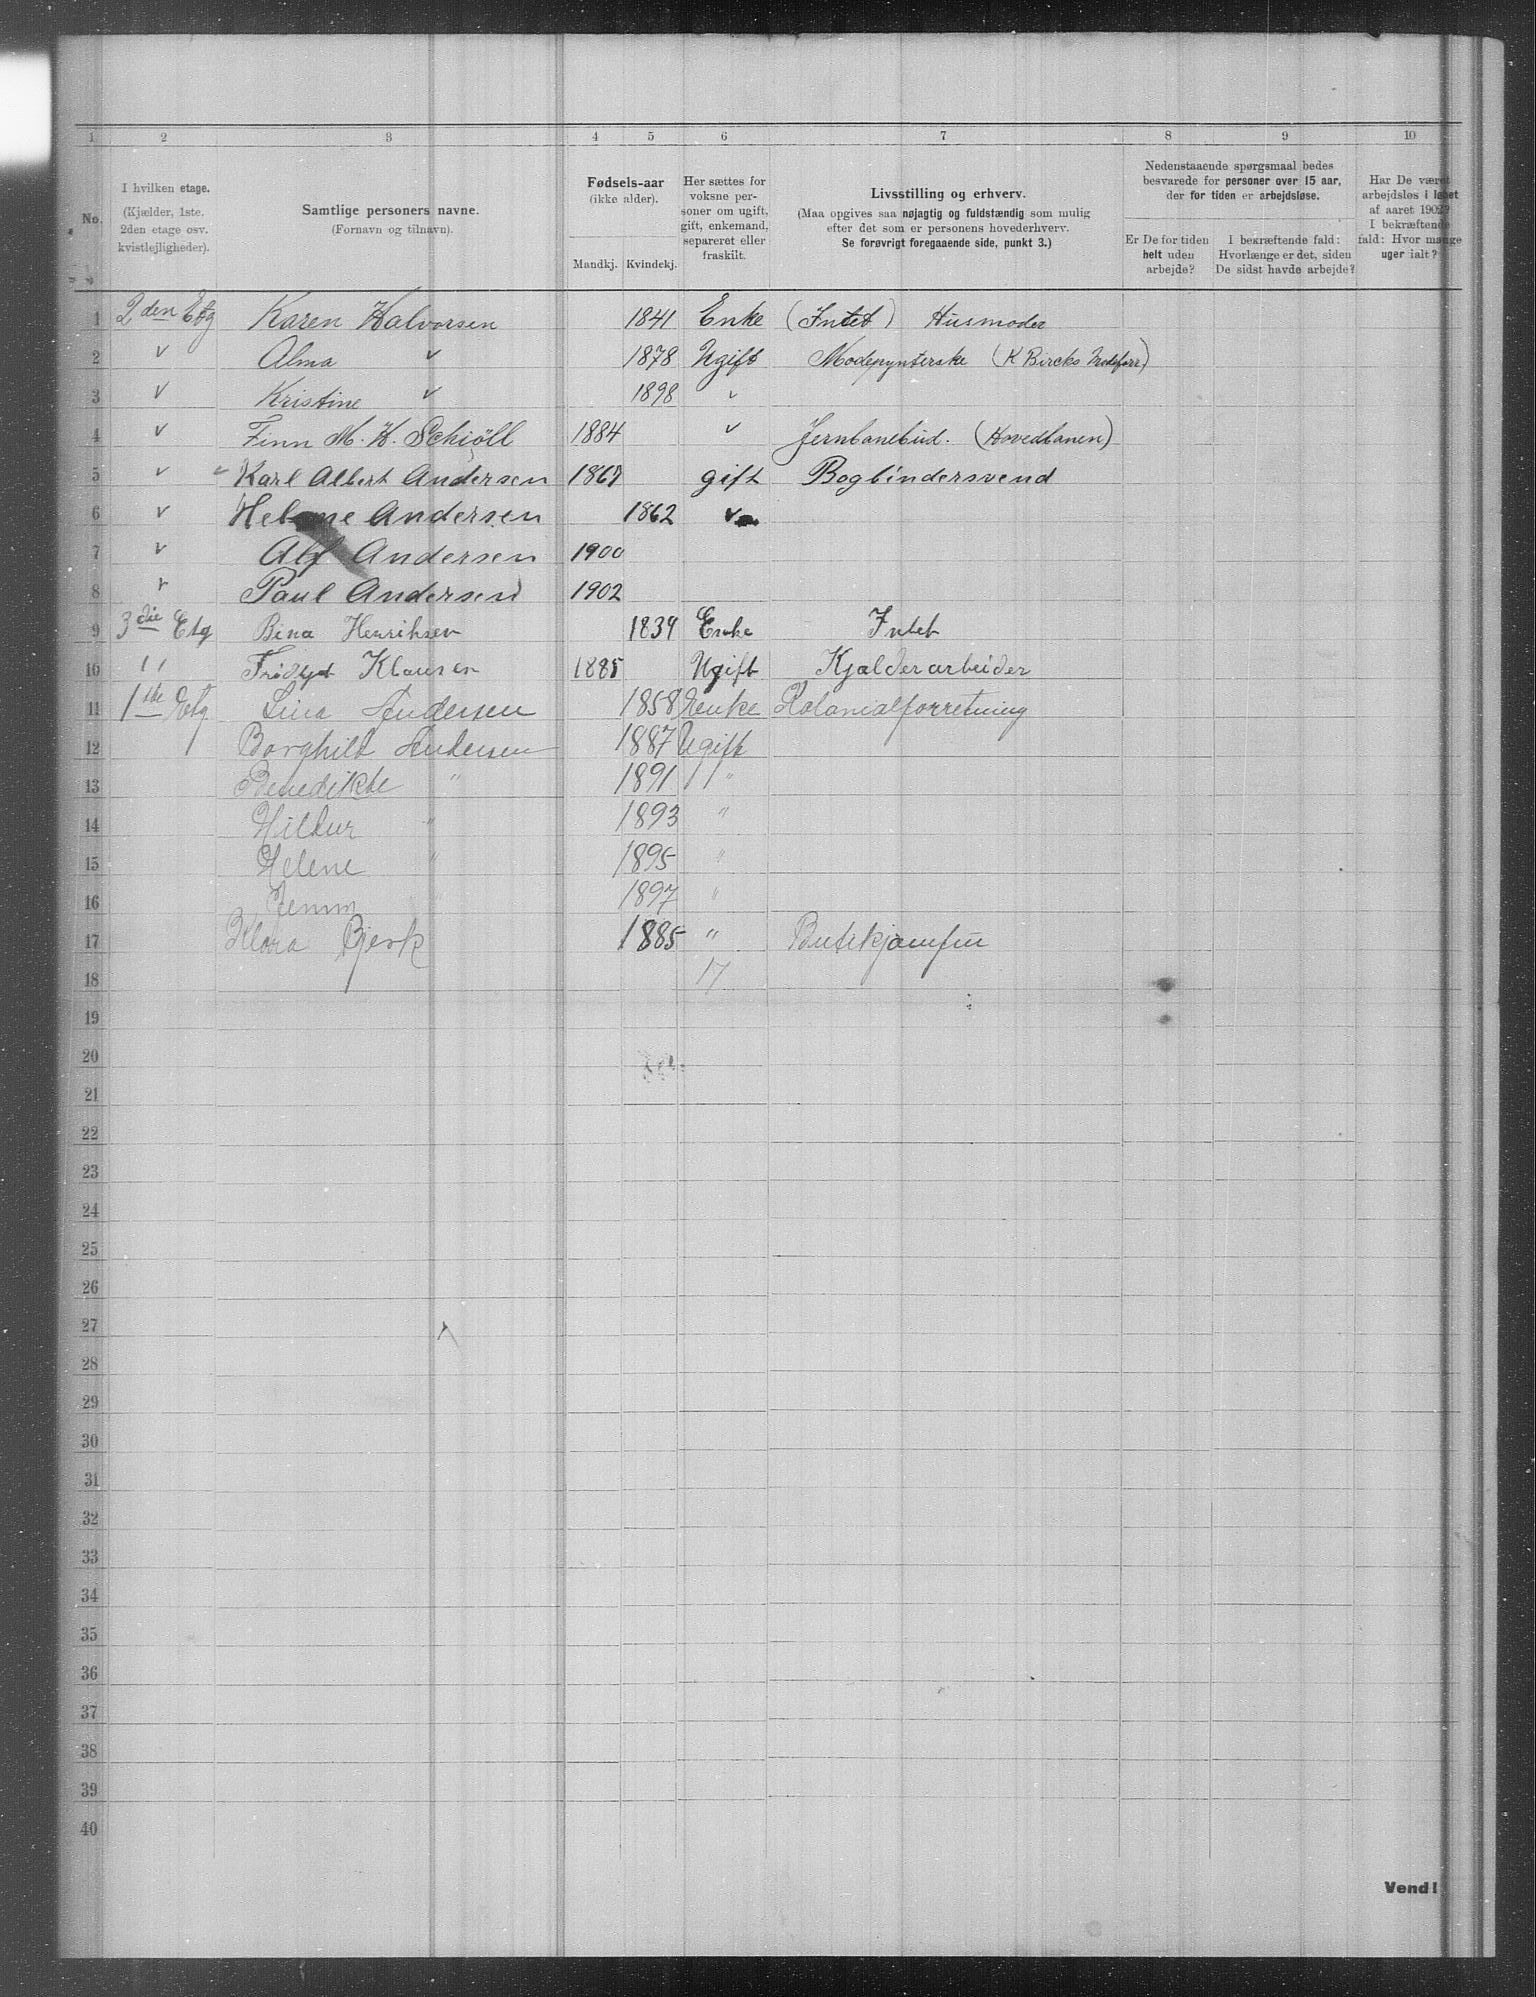 1 2 3 4 5 6 7 8 9 10
No.
I hvilken etage.
(Kjælder, 1ste.
2den etage osv.
kvistlejligheder).
Samtlige personers navne.
(Fornavn og tilnavn).
Fødsels-aar
(ikke alder).
Mandkj. Kvindekj.
Her sættes for
voksne per-
soner om ugift,
gift, enkemand,
separeret eller
fraskilt.
Livsstilling og erhverv.
(Maa opgives saa nøjagtig og fuldstændig som mulig
efter det som er personens hovederhverv.
Se forøvrigt foregaaende side, punkt 3.)
Nedenstaaende spørgsmaal bedes
besvarede for personer over 15 aar,
der for tiden er arbejdsløse.
Er De for tiden
helt uden
arbejde?
I bekræftende fald:
Hvorlænge er det, siden
De sidst havde arbejde?
Har De været
arbejdsløs i løbet
af aaret 1902?
I bekræftende
fald: Hvor mange
uger ialt?
1 2den Etg Karen Halvorsen 1841 Enke (Intet) Husmoder
2 v Alma v 1878 Ugift Modepynterske (K Bircks Modeforr)
3 v Kristine v 1898 v
4 v Finn M. H. Schiöll 1884 v Jernbanebud. (Hovedbanen)
5 v Karl Albert Andersen 1867 gift Bogbindersvend
6 v Helene Andersen 1862 v
7 v Alf Andersen 1900
8 v Paul Andersen 1902
9 3die Etg Bina Henriksen 1839 Enke Intet
10 " Klausen 1885 Ugift Kjælderarbeider
11 1ste Etg Lina Andersen 1858 Enke Kolonialforretning
12 Borghild Andersen 1887 Ugift
13 Benedikte " 1891 "
14 Hildur " 1893 "
15 Helene " 1895 "
16 " 1897 "
17 Klara Bjerk 1885 "
18 17
19
20
21
22
23
24
25
26
27
28
29
30
31
32
33
34
35
36
37
38
39
40
Vend!